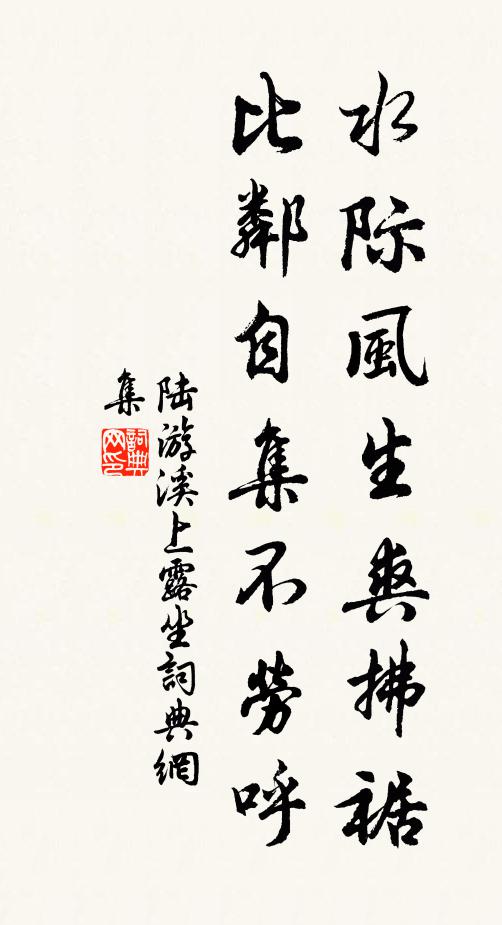 水际風生爽拂裾
比鄰自集不勞呼
陆游溪上露坐詞典網
集
詞典网印